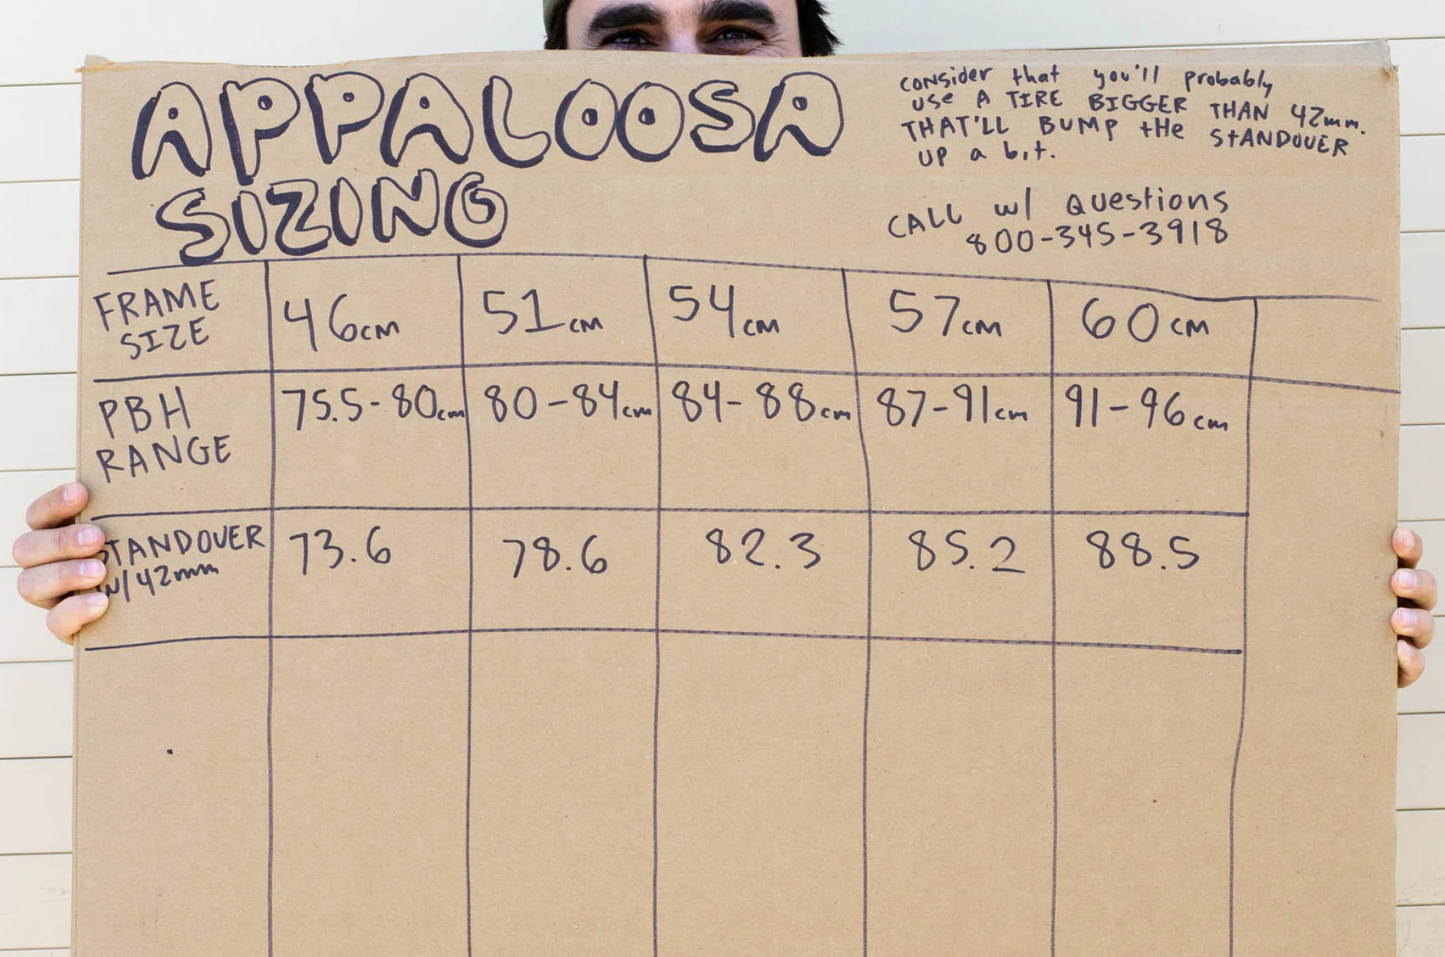 APPALOOSA
SIZING
consider that you'll probably
use A TIRE BIGGER THAN 42mm.
THAT'LL BUMP tHe StANDOVER
UP a bit.
CALL w/ Questions
800-345-3918
FRAME SIZE 46cm 51cm 54cm 57cm 60cm
PBH RANGE 75.5-80cm 80-84cm 84-88cm 87-91cm 91-96cm
STANDOVER w/42mm 73.6 78.6 82.3 85.2 88.5